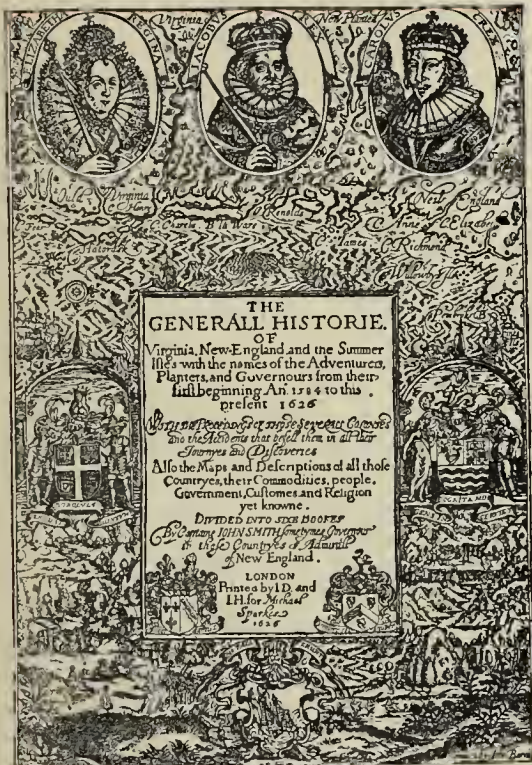 ELIZABETHA REGINA
IACOBVS REX
CAROLVS REX
Virginia
New Planted
Ould Virginia
New England
C. Henry
C. Charels
B. la Ware
C. Anne
C. Elizabeth
C. James
C. Richmond
Willowbys Ils
THE
GENERALL HISTORIE.
OF
Virginia, New-England and the Summer
Isles with the names of the Adventurers,
Planters, and Governours from their
first beginning An: 1584 to this
present 1626
With the Proceedings of those Severall Colonies
and the Accidents that befell them in all their
Journyes and Discoveries
Also the Maps and Descriptions of all those
Countryes, their Commodities, people,
Government, Customes, and Religion
yet knowne.
DIVIDED INTO SIXE BOOKES
By Captaine IOHN SMITH sometymes Governour
in those Countryes & Admirall
of New England.
LONDON
Printed by I.D. and
I.H. for Michael
Sparkes
1626